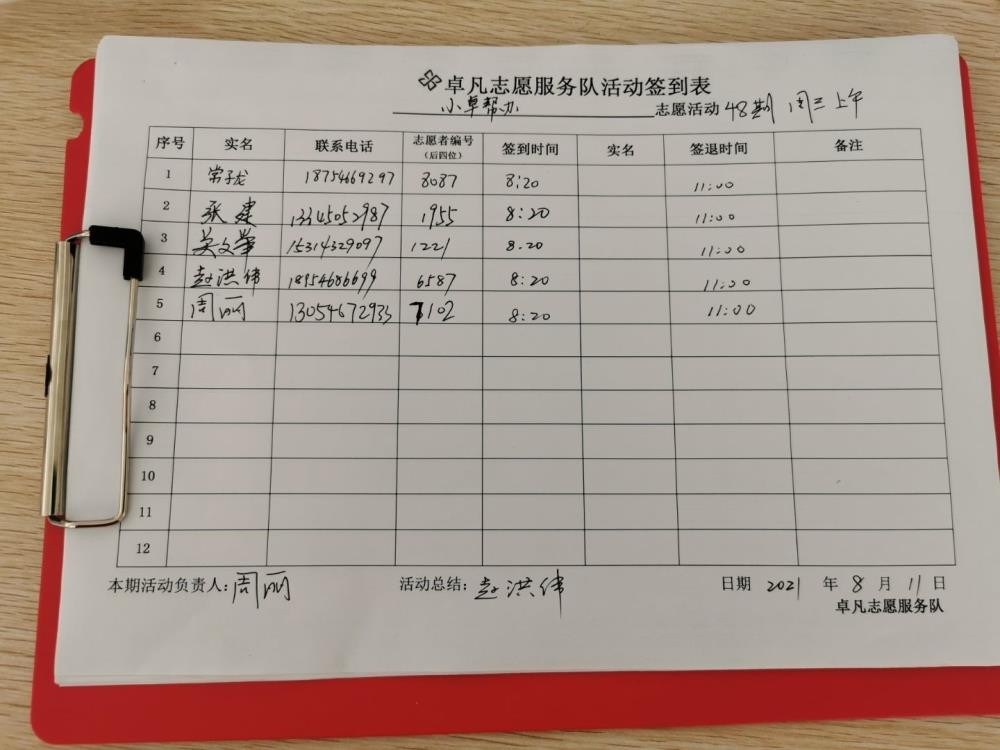 卓凡志愿服务队活动签到表
小卓帮办 志愿活动 48期 周三上午
序号 实名 联系电话 志愿者编号(后四位) 签到时间 实名 签退时间 备注
1 常子龙 18754669297 8087 8:20 11:00
2 张建 13345052987 1955 8:20 11:00
3 吴文华 15314329097 1221 8.20 11:00
4 赵洪伟 18954686699 6587 8:20 11:00
5 周丽 13054672933 7102 8:20 11:00
6
7
8
9
10
11
12
本期活动负责人:周丽 活动总结:赵洪伟 日期 2021 年 8 月 11 日
卓凡志愿服务队